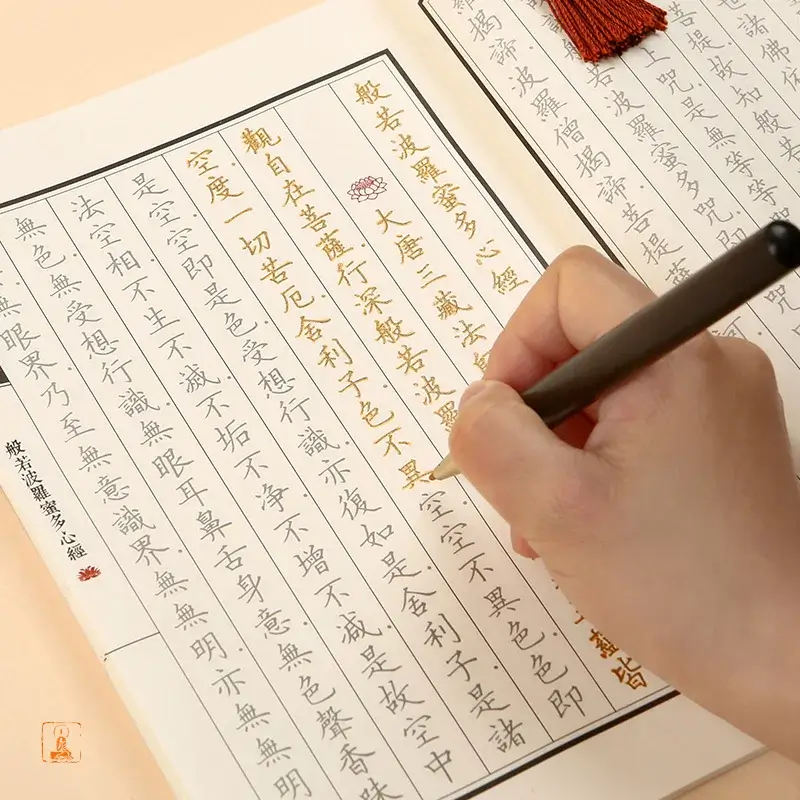 世諸佛依
菩提故知般若
上咒是無等等咒
若波羅蜜多咒.即
羅揭諦.波羅僧揭諦.菩提薩
般若波羅蜜多心經
大唐三藏法
觀自在菩薩.行深般若波羅 蘊皆
空.度一切苦厄.舍利子.色不異空.空不異色.色即
是空.空即是色.受想行識.亦復如是.舍利子.是諸
法空相.不生不滅.不垢不淨.不增不減.是故空中
無色.無受想行識.無眼耳鼻舌身意.無色聲香味
無眼界.乃至無意識界.無無明.亦無無明
般若波羅蜜多心經